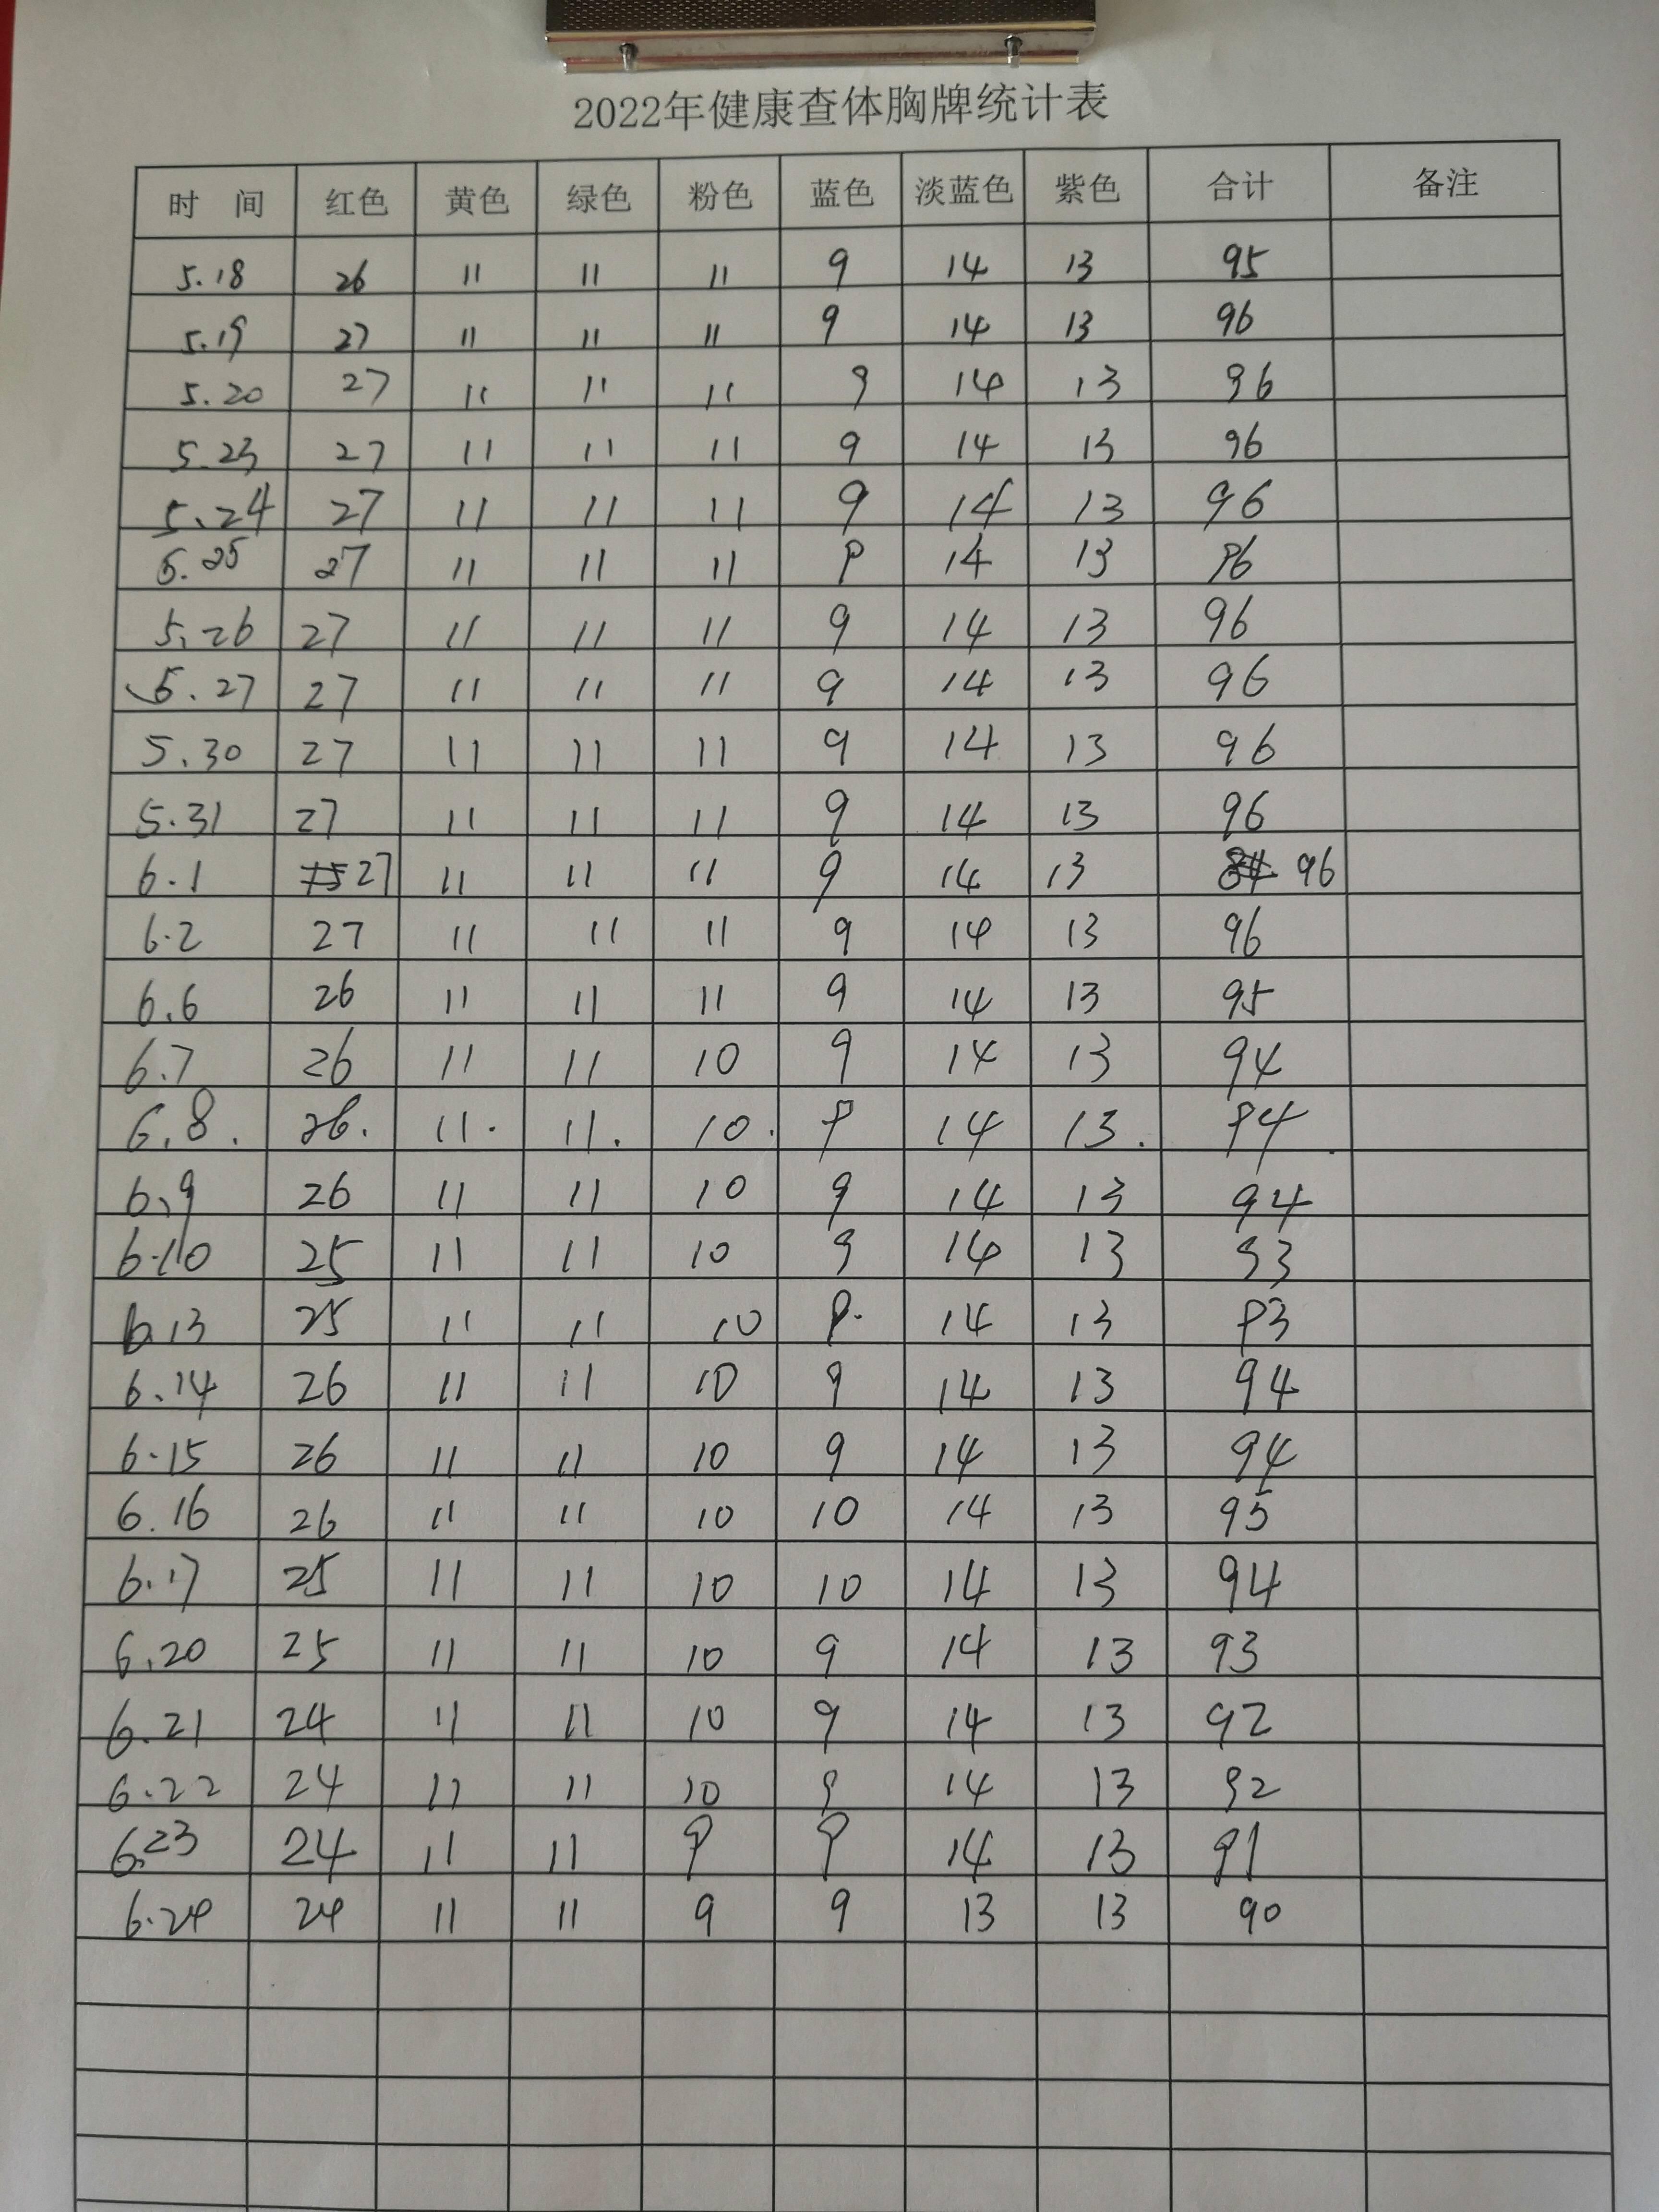 2022年健康查体胸牌统计表
时 间 红色 黄色 绿色 粉色 蓝色 淡蓝色 紫色 合计 备注
5.18 26 11 11 11 9 14 13 95
5.19 27 11 11 11 9 14 13 96
5.20 27 11 11 11 9 14 13 96
5.23 27 11 11 11 9 14 13 96
5.24 27 11 11 11 9 14 13 96
5.25 27 11 11 11 9 14 13 96
5.26 27 11 11 11 9 14 13 96
5.27 27 11 11 11 9 14 13 96
5.30 27 11 11 11 9 14 13 96
5.31 27 11 11 11 9 14 13 96
6.1 27 11 11 11 9 14 13 96
6.2 27 11 11 11 9 14 13 96
6.6 26 11 11 11 9 14 13 95
6.7 26 11 11 10 9 14 13 94
6.8. 26. 11. 11. 10. 9 14 13. 94.
6.9 26 11 11 10 9 14 13 94
6.10 25 11 11 10 9 14 13 93
6.13 25 11 11 10 9. 14 13 93
6.14 26 11 11 10 9 14 13 94
6.15 26 11 11 10 9 14 13 94
6.16 26 11 11 10 10 14 13 95
6.17 25 11 11 10 10 14 13 94
6.20 25 11 11 10 9 14 13 93
6.21 24 11 11 10 9 14 13 92
6.22 24 11 11 10 9 14 13 92
6.23 24 11 11 9 9 14 13 91
6.24 24 11 11 9 9 13 13 90